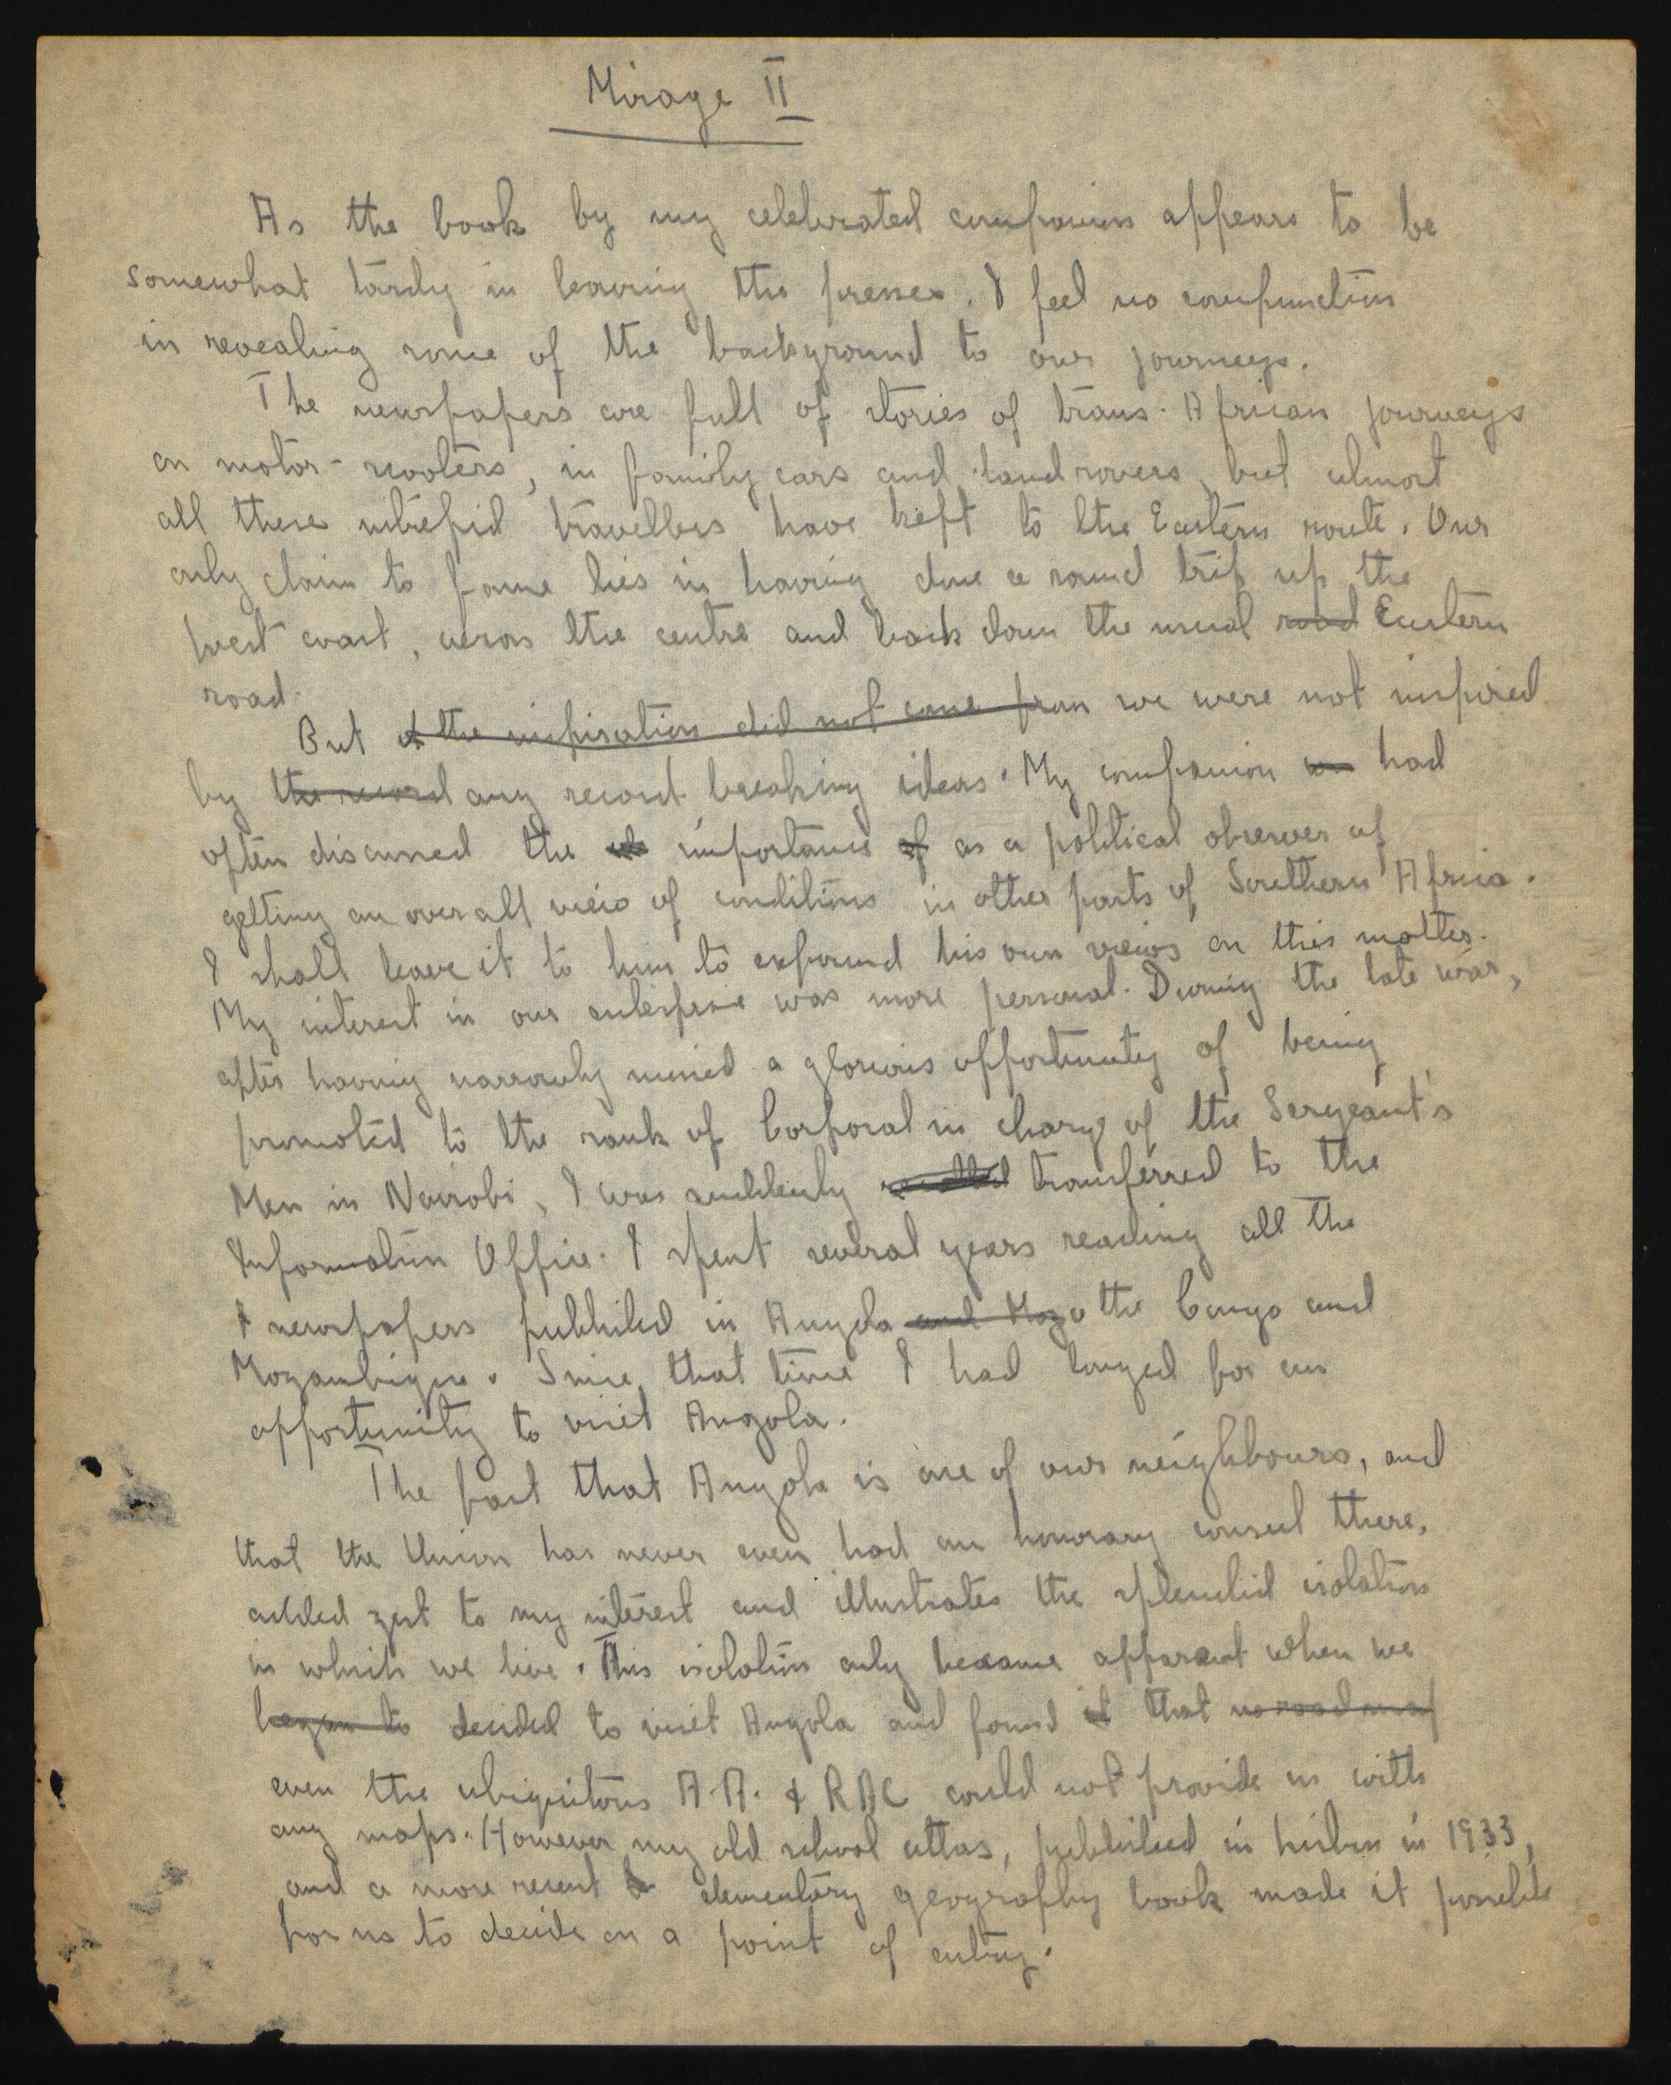 Mirage II
As the book by my celebrated companion appears to be
somewhat tardy in leaving the presses. I feel no compunction
in revealing some of the background to our journeys.
The newspapers are full of stories of trans-African journeys
on motor-scooters, in family cars and landrovers, but almost
all these intrepid travellers have kept to the Eastern route. Our
only claim to fame lies in having done a round trip up the
west coast, across the centre and back down the usual road Eastern
road.
But the inspiration did not come from we were not inspired
by the record any record breaking ideas. My companion had
often discussed the importance of as a political observer of
getting an overall view of conditions in other parts of Southern Africa.
I shall leave it to him to expound his own views on this matter.
My interest in our enterprise was more personal. During the late war,
after having narrowly missed a glorious opportunity of being
promoted to the rank of Corporal in charge of the Sergeant's
Mess in Nairobi, I was suddenly transferred to the
Information Office. I spent several years reading all the
newspapers published in Angola and Moza the Congo and
Mozambique. Since that time I had longed for an
opportunity to visit Angola.
The fact that Angola is one of our neighbours, and
that the Union has never even had an honorary consul there,
added zest to my interest and illustrates the splendid isolation
in which we live. This isolation only became apparent when we
began to decided to visit Angola and found it that no road map
even the ubiquitous A.A. & RAC could not provide us with
any maps. However my old school atlas, published in Lisbon in 1933,
and a more recent elementary geography book made it possible
for us to decide on a point of entry.